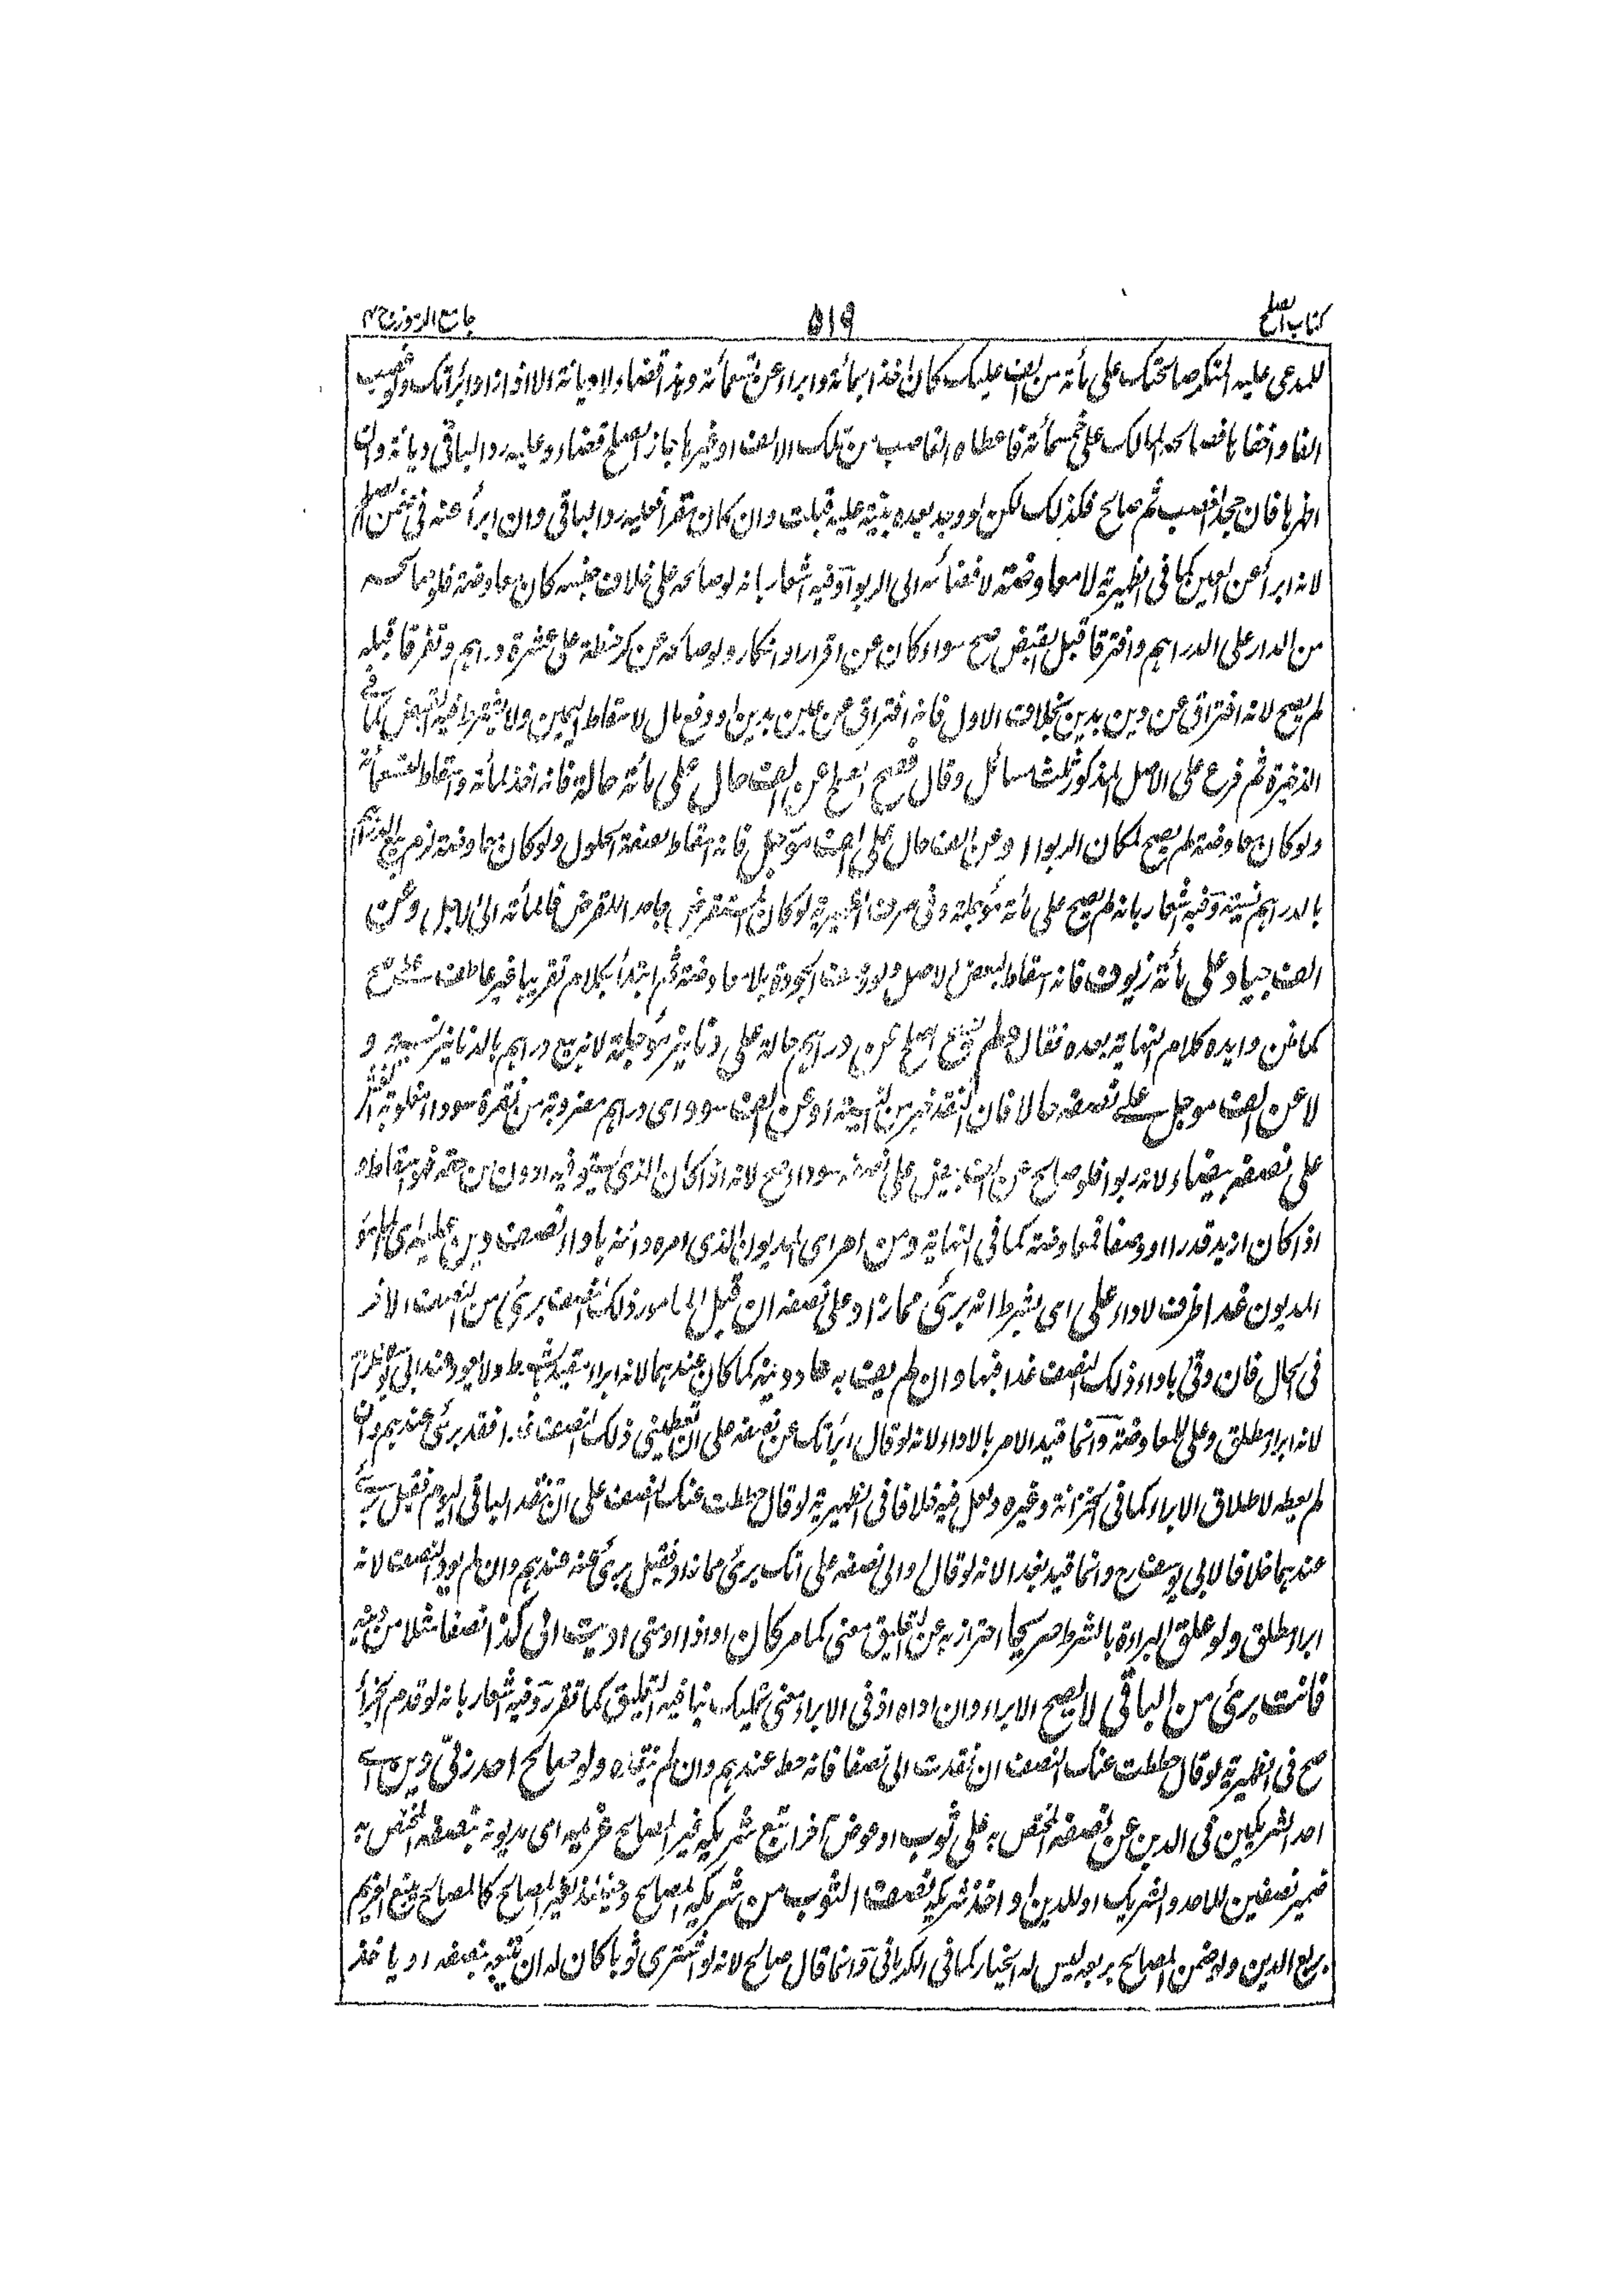 كتاب الصلح ٥١٩ جامع الرموز ج
للمدعى عليه المنكر صالحتك على مائة من الف عليك كان اخذا بمائة وابراء عن تسعمائة وهذا قضاء ولا ديانة الا اذا زاد وابرأتك ولو غصب
الفا واخفاها فصالحه المالك على خمسمائة فاعطاه الغاصب من تلك الالف او غيرها جاز الصلح قضاء وعليه رد الباقي ديانة وان
اظهرها فان جحد الغصب ثم صالح فكذلك لكن لو وجد بعده بينة عليه قبلت وان كان مقرا فعليه رد الباقي وان ابرأ عنه في ضمن الصلح
لانه ابرأ عن العين كما في الظهيرية لا معاوضة لافضائه الى الربوا وفيه اشعار بانه لو صالحه على خلاف جنسه كان معاوضة فلو صالحه
من الدار على الدراهم وافترقا قبل القبض صح سواء كان عن اقرار او انكار ولو صالحه عن كر حنطة على عشرة دراهم وتفرقا قبله
لم يصح لانه افتراق عن دين بدين بخلاف الاول فانه افتراق عن عين بدين او دفع مال لاسقاط اليمين ولا يشترط فيه القبض كما في
الذخيرة ثم فرع على الاصل المذكور ثلث مسائل وقال فصح الصلح عن الف حال على مائة حالة فانه اخذ لمائة واسقاط لتسعمائة
ولو كان معاوضة لم يصح لمكان الربوا او عن الف حال على الف مؤجل فانه اسقاط لصفة الحلول ولو كان معاوضة لزم بيع الدراهم
بالدراهم نسيئة وفيه اشعار بانه لم يصح على مائة مؤجلة وفي صرف الظهيرية لو كان المستقرض جاحدا للقرض فالمائة الى الاجل وعن
الف جياد على مائة زيوف فانه اسقاط لبعض الاصل ولوصف الجودة بلا معاوضة ثم ابتدأ بكلام تقريبا غير عاطف على صح
كما ظن وايده كلام النهاية بعده فقال ولم يصح الصلح عن دراهم حالة على دنانير مؤجلة لانه بيع دراهم بالدنانير نسيئة و
لا عن الف مؤجل على نصفه حالا فان النقد خير من النسيئة او عن الف سود اى دراهم مضروبة من نقرة سوداء مغلوبة الغش
على نصفه بيضاء لانه ربوا فلو صالح عن الف بيض على نصفه سوداء صح لانه اذا كان الذى يستوفيه ادون من حقه فهو اسقاط و
اذا كان ازيد قدرا او وصفا فمعاوضة كما في النهاية ومن امر اى المديون الذى امره دائنه باداء نصف دين عليه اى على
المديون غدا ظرف لاداء على اى بشرط انه برئ مما زاد على نصفه ان قبل المامور ذلك النصف برئ من النصف الاخر
في الحال فان وفى باداء ذلك النصف غدا فبها وان لم يف به عاد دينه كما كان عندهما لانه ابراء مقيد بشرط ولا يعود عند ابى يوسف رح
لانه ابراء مطلق وعلى للمعاوضة وانما قيد الامر بالاداء لانه لو قال ابرأتك عن نصفه على ان تعطينى ذلك النصف غدا فقد برئ عندهم وان
لم يعطه لاطلاق الابراء كما في الخزانة وغيره ولعل فيه خلافا في الظهيرية لو قال حططت عنك النصف على ان تنقد الباقي اليوم فقبل برئ
عندهما خلافا لابى يوسف رح وانما قيد بغدا لانه لو قال ادالى نصفه على انك برئ مما زاد فقبل برئ عنه عندهم وان لم يود النصف لانه
ابراء مطلق ولو علق البراءة بالشرط صريحا احتراز به عن التعليق معنى كما مر كان او اذا او متى اديت الى كذا نصفا مثلا من دينه
فانت برئ من الباقي لا يصح الابراء وان اداه اذ في الابراء معنى تمليك ينافيه التعليق كما تقرر وفيه اشعار بانه لو قدم الجزاء
صح في الظهيرية لو قال حططت عنك النصف ان نقدت الى نصفا فانه حط عندهم وان لم ينقده ولو صالح احد ربى دين اى
احد الشريكين في الدين عن نصفه المختص به على ثوب او عوض آخر اتبع شريكه غير المصالح غريمه اى مديونه بنصفه المختص به
فضمير نصفين للاحد والشريك او للدين او اخذ شريكه نصف الثوب من شريكه المصالح وحينئذ لغير المصالح كالمصالح يتبع الغريم
بربع الدين ولو ضمن المصالح بربعه ليس له الخيار كما في الكرمانى وانما قال صالح لانه لو اشترى ثوبا كان له ان يتبعه بنصفه او ياخذ